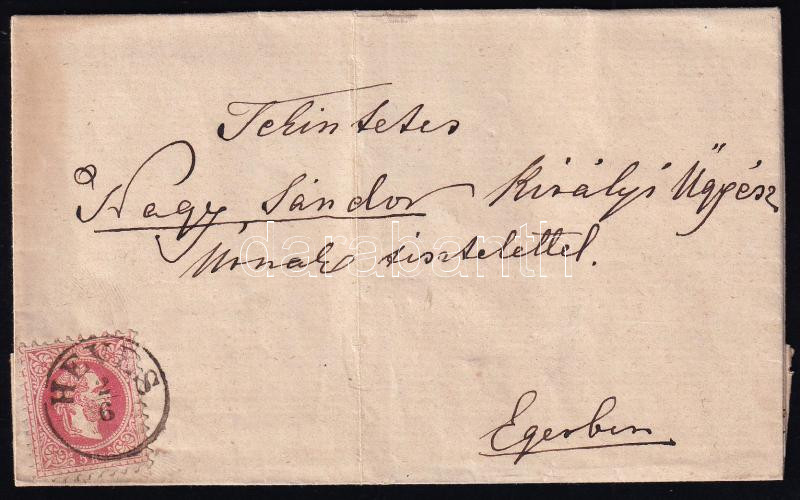 Tekintetes
Nagy Sándor Királyi Ügyész
Úrnak tisztelettel.
darabanth
HEVES
6
Egerben